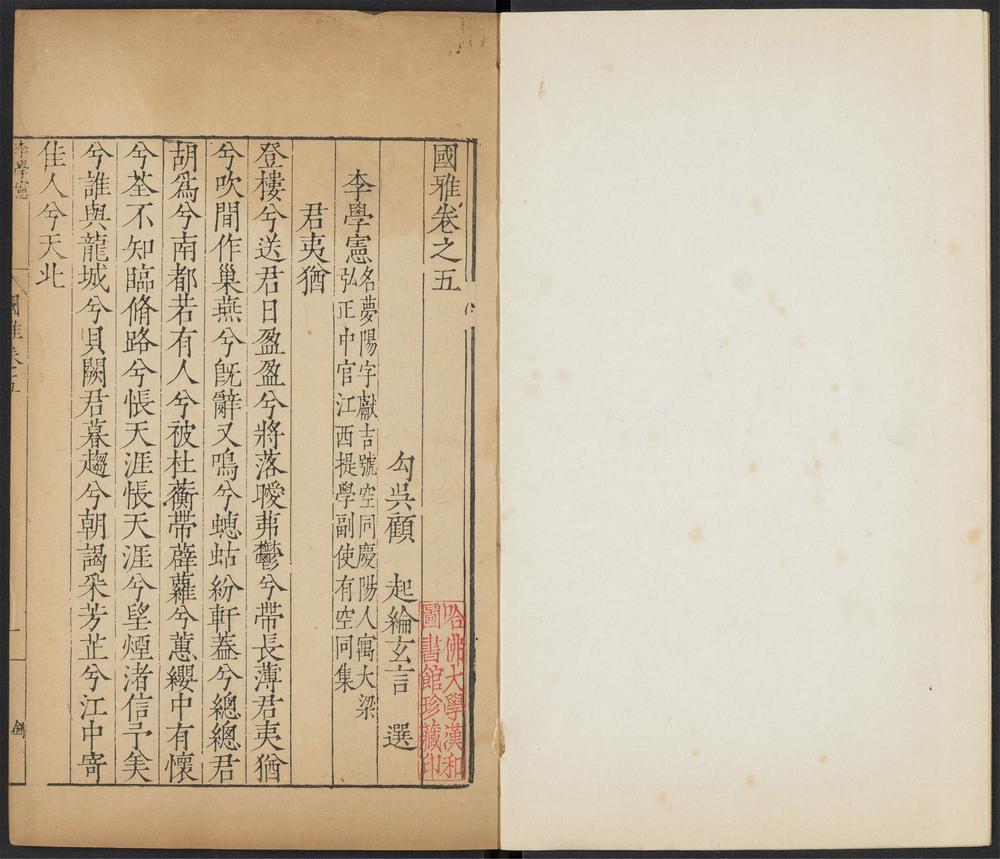 國雅卷之五
勾吳顧 起綸玄言 選
李學憲 名夢陽字獻吉號空同慶陽人寓大梁
弘正中官江西提學副使有空同集
君夷猶
登樓兮送君日盈盈兮將落曖茀鬱兮帶長薄君夷猶
兮吹間作巢燕兮旣辭又鳴兮蟪蛄紛軒蓋兮總總君
胡爲兮南都若有人兮被杜蘅帶薜蘿兮蕙纓中有懷
兮荃不知臨脩路兮悵天涯悵天涯兮望煙渚信予美
兮誰與龍城兮貝闕君暮趨兮朝謁采芳芷兮江中寄
佳人兮天北
李學憲
國雅卷五
一
哈佛大學漢和
圖書館珍藏印